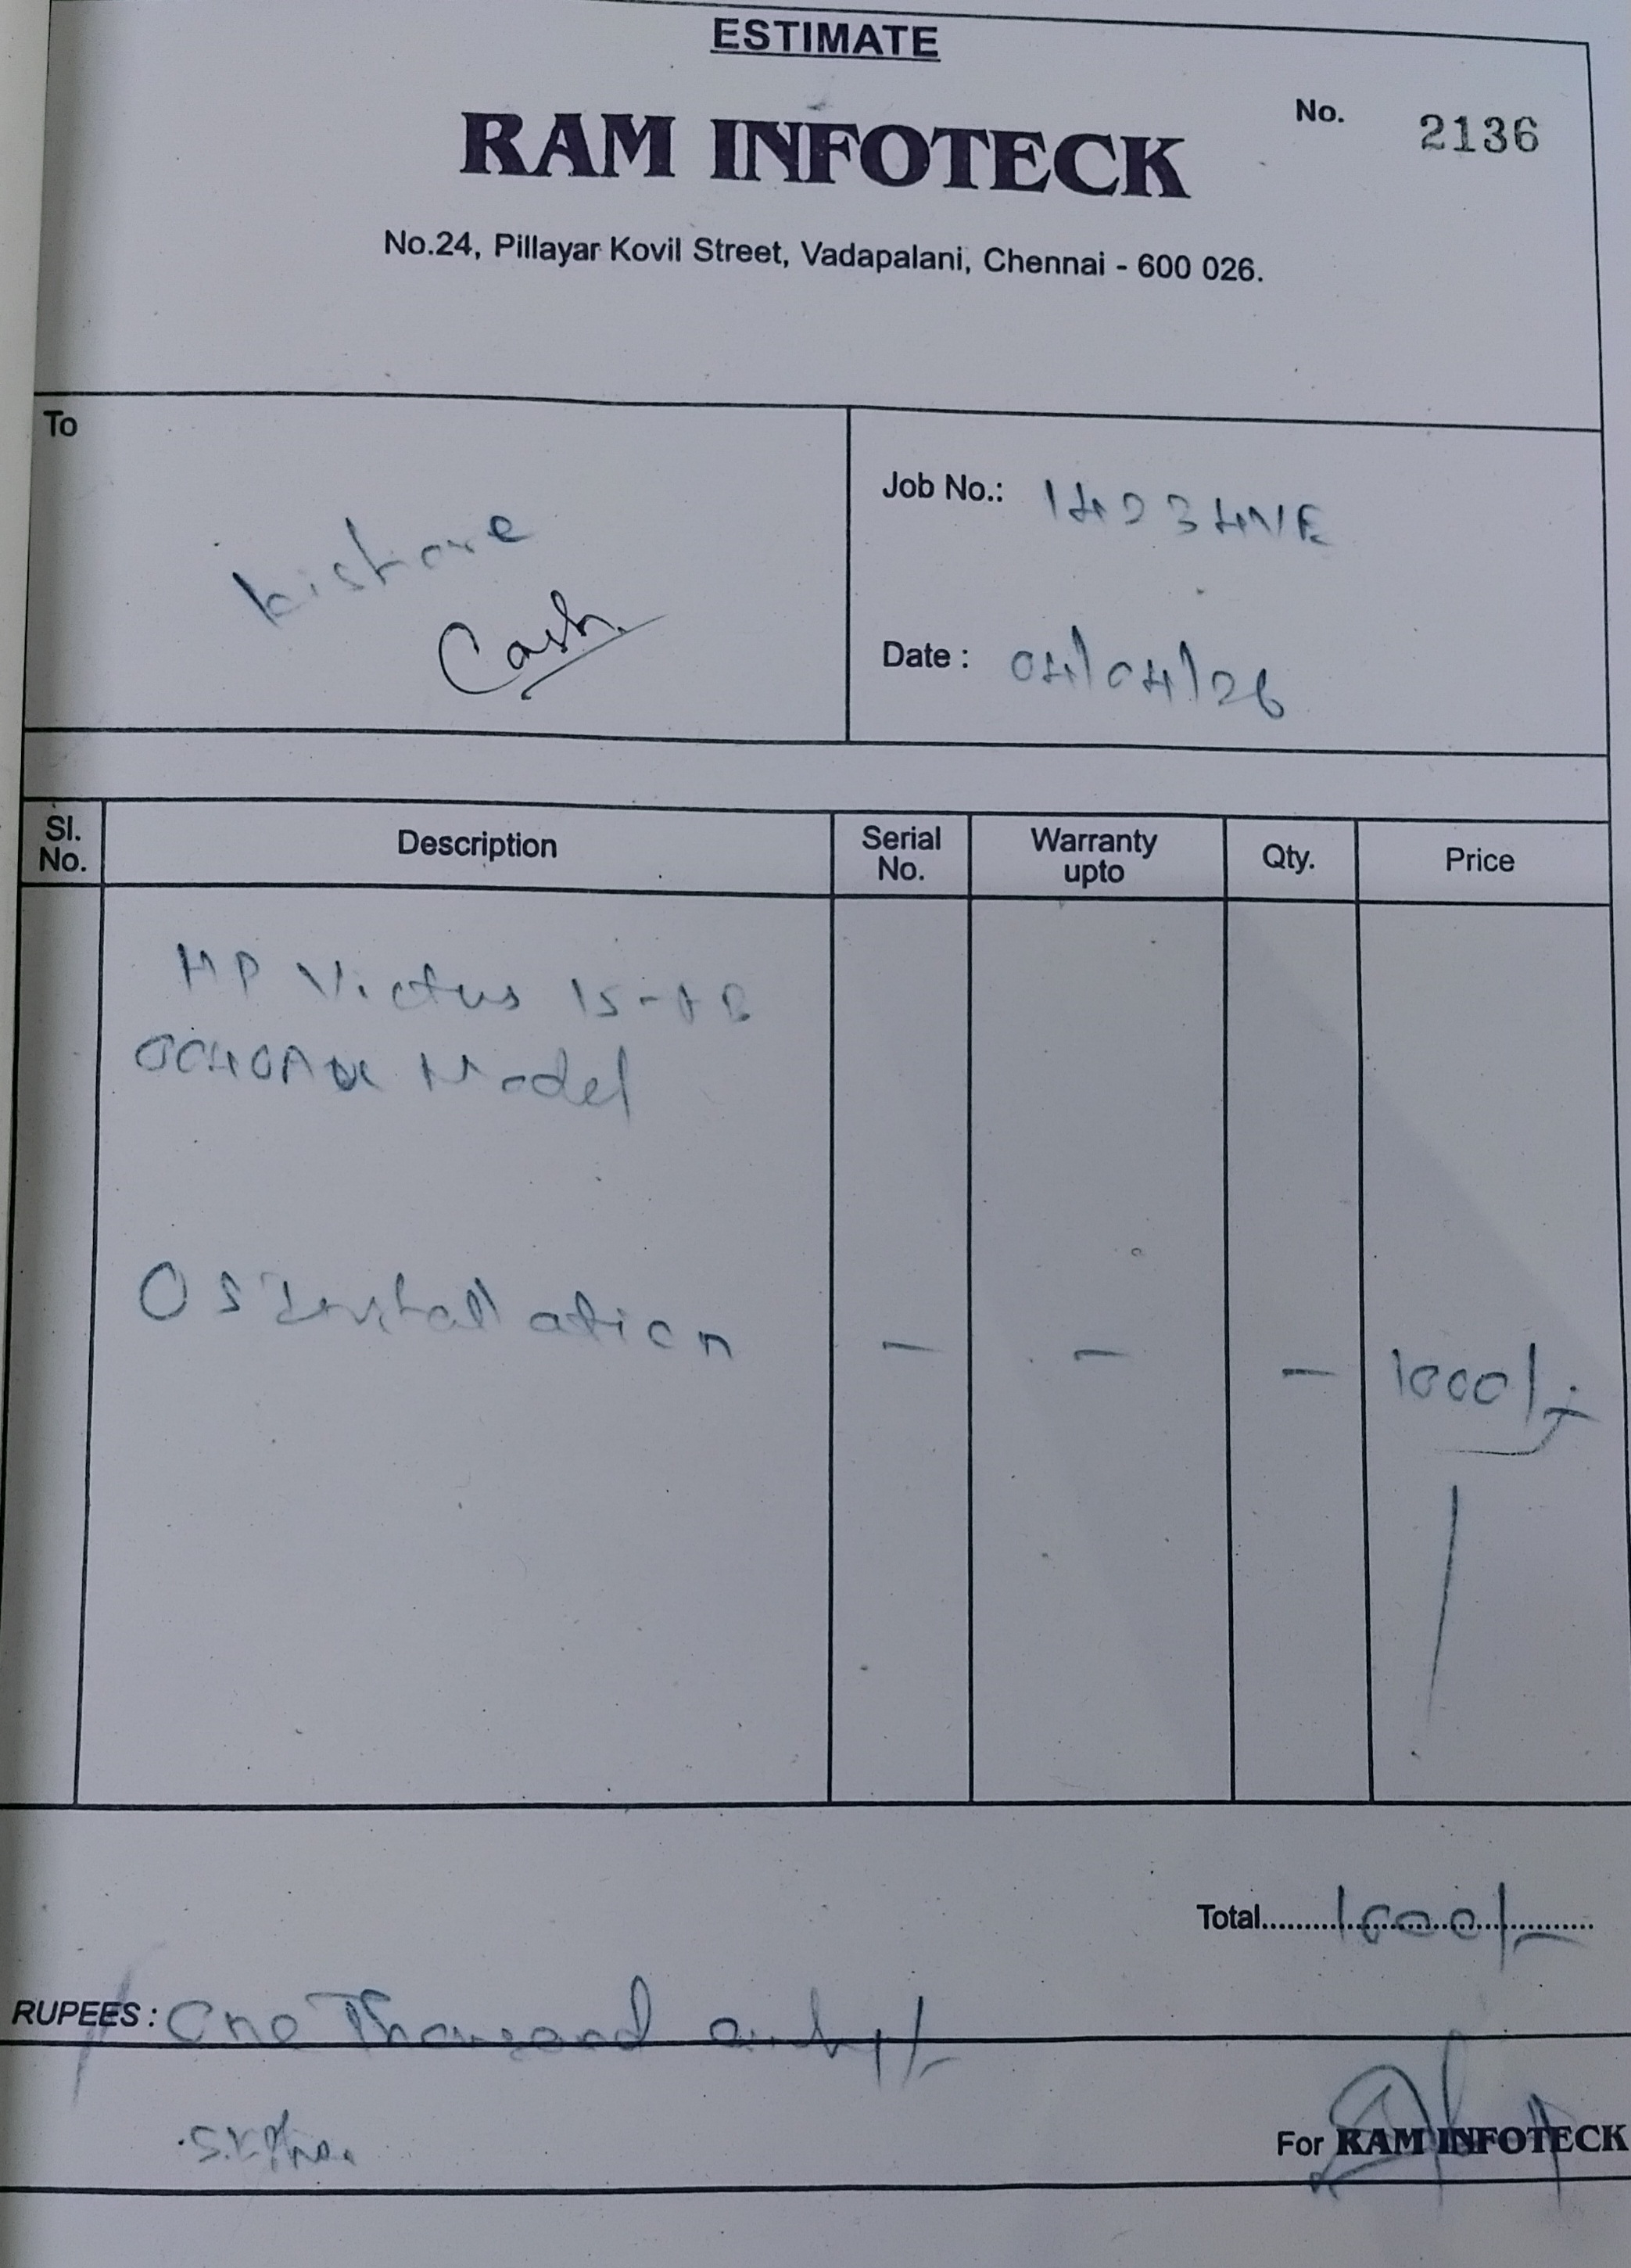 ESTIMATE
No. 2136
RAM INFOTECK
No.24, Pillayar Kovil Street, Vadapalani, Chennai - 600 026.
To
kishore
Cash
Job No.:
Date : 04/04/26
Sl. No. Description Serial No. Warranty upto Qty. Price
HP Victus 15-
Model
OS Installation - - - 1000/-
Total 1000/-
RUPEES : One Thousand only/-
For RAM INFOTECK